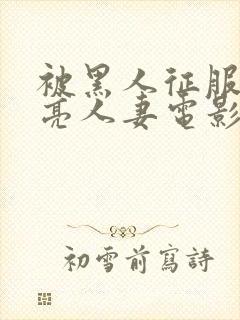 被黑人征服
亮人妻電影
初雪前寫詩